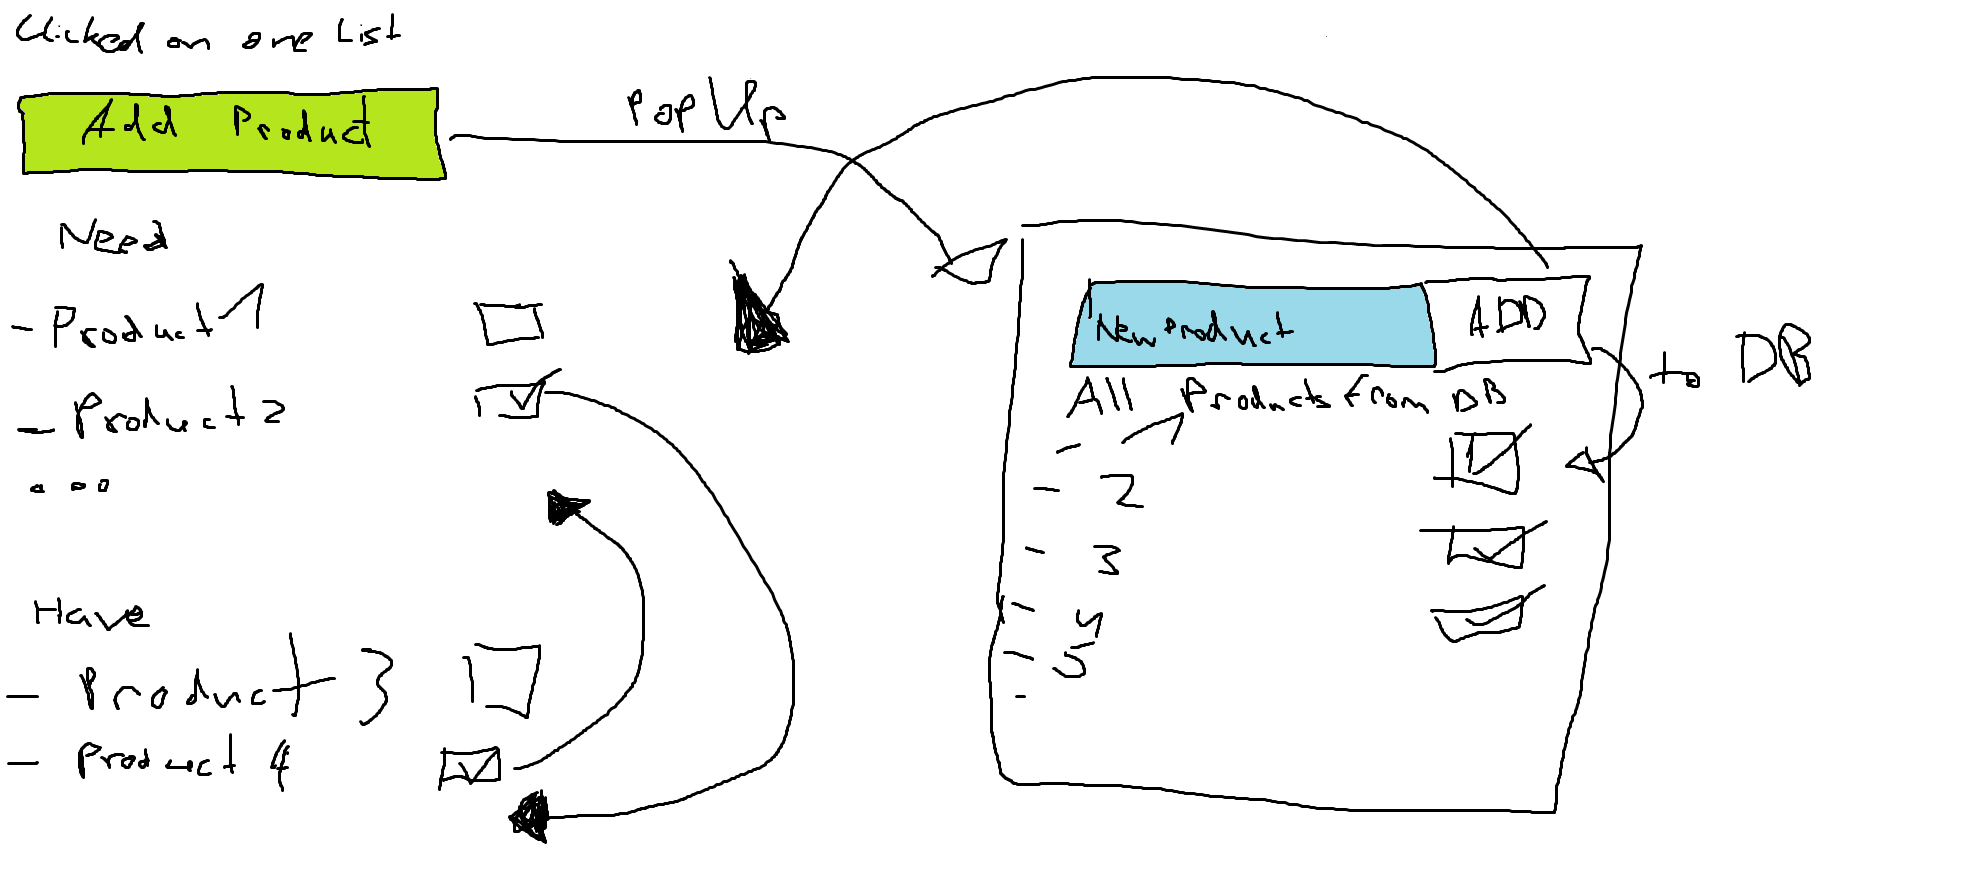 Clicked on one List
Add Product
PopUp
Need
- Product 1
- Product 2
...
Have
- Product 3
- Product 4
New Product
ADD
to DB
All Products from DB
- 1
- 2
- 3
- 4
- 5
-